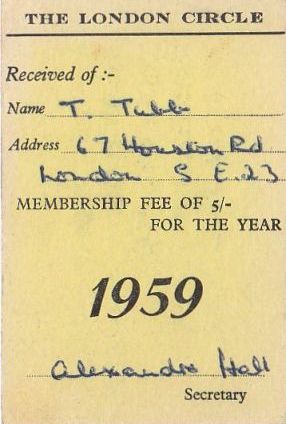 THE LONDON CIRCLE
Received of :-
Name T. Tubb
Address 67 Houston Rd
London S E.23
MEMBERSHIP FEE OF 5/-
FOR THE YEAR
1959
Alexandra Hall
Secretary